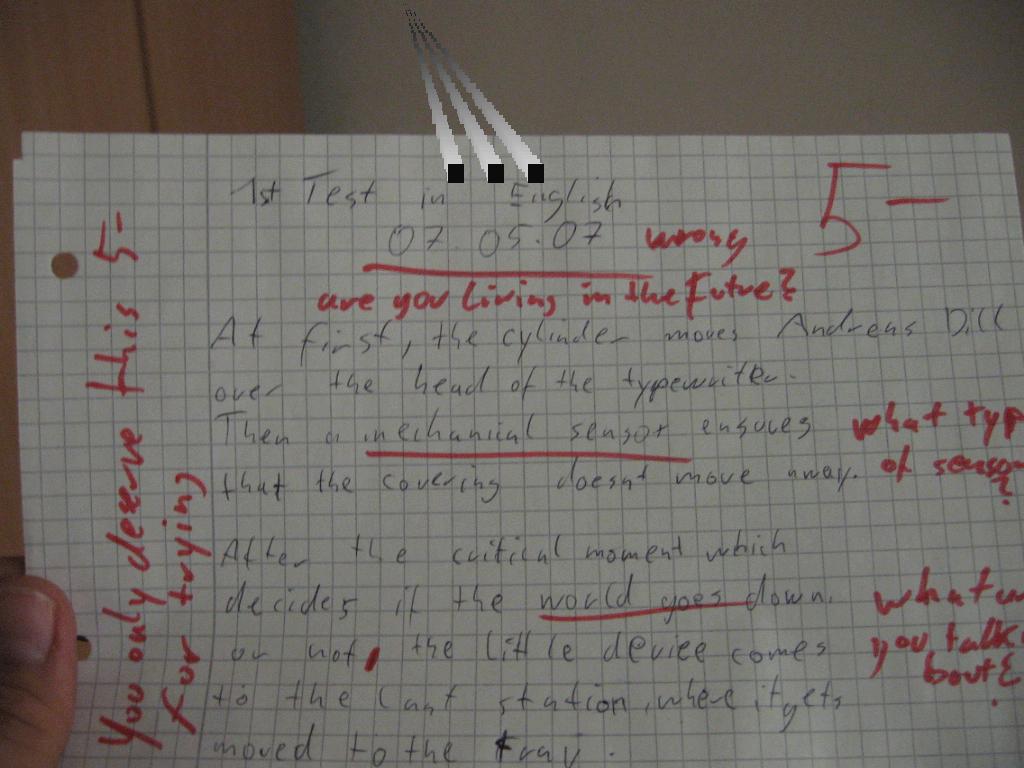 1st Test in English
5-
07.05.07 wrong
are you living in the future?
At first, the cylinder moves Andreas Dill
over the head of the typewriter.
Then a mechanical sensor ensures
what typ
that the covering doesnt move away.
of senso
?
After the critical moment which
decides if the world goes down
or not, the little device comes
you talk
bout?
to the last station, where it gets
moved to the tray.
You only deserve this 5-
for trying